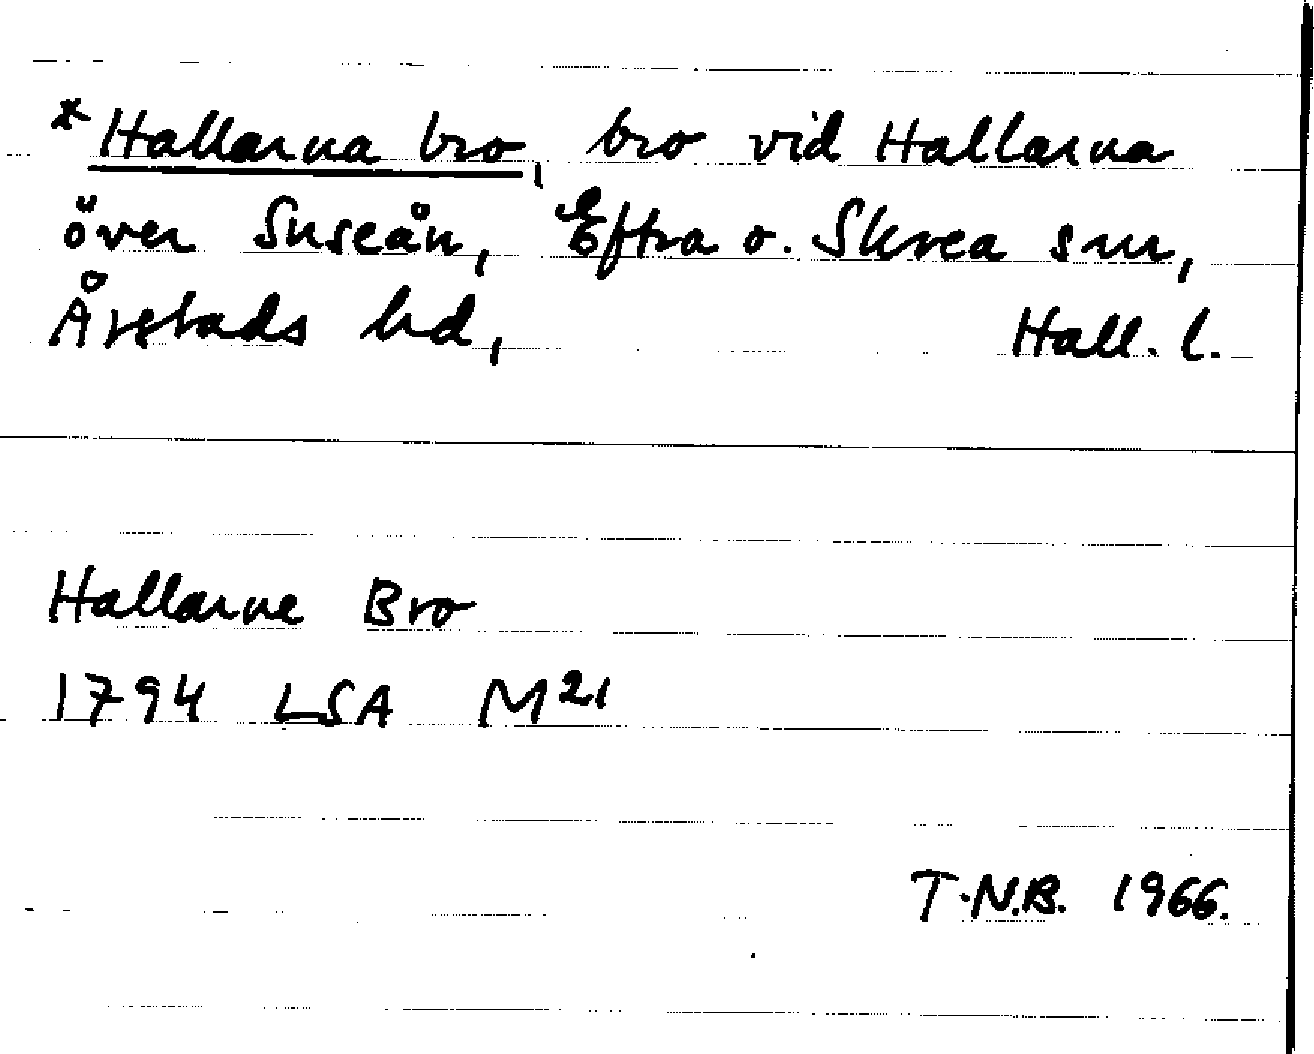 *Hallarna bro, bro vid Hallarna
över Suseån, Eftra o. Skrea snr,
Årstads hd, Hall. l.
Hallarne Bro
1794 LSA M21
T.N.B. 1966.